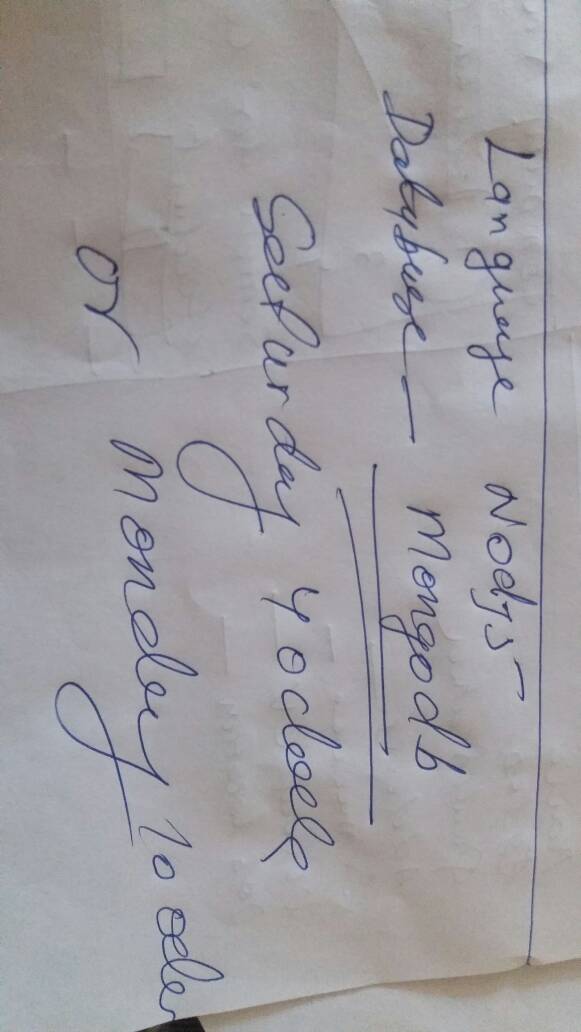 Language Nodjs
Database - Mongodb
Saturday 4 oclock
or
Monday 10 oclo